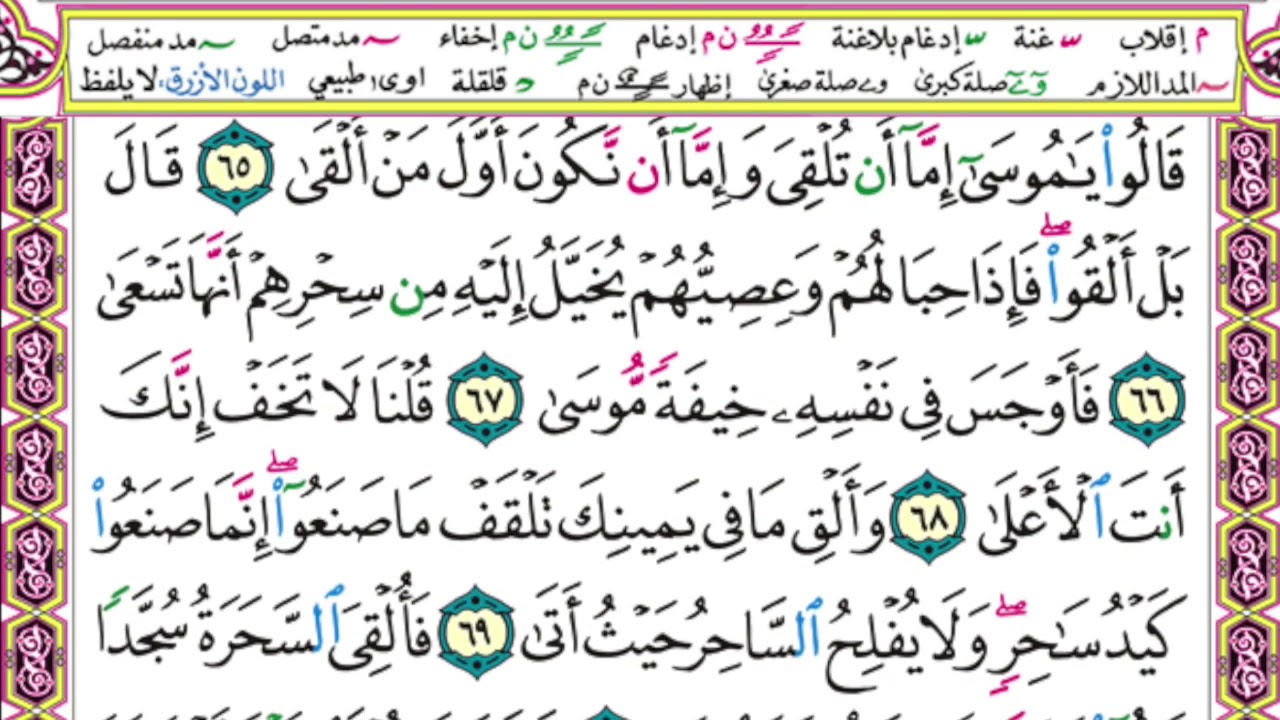 م إقلاب ـس غنة ـس إدغام بلاغنة ن م إدغام ن م إخفاء ـمد متصل ـمد منفصل
المد اللازم صلة كبرى وے صلة صغرى إظهار ن م د قلقلة اوى طبيعي اللون الأزرق، لا يلفظ
قَالُوا۟ يَـٰمُوسَىٰٓ إِمَّآ أَن تُلْقِىَ وَإِمَّآ أَن نَّكُونَ أَوَّلَ مَنْ أَلْقَىٰ ٦٥ قَالَ
بَلْ أَلْقُوا۟ۖ فَإِذَا حِبَالُهُمْ وَعِصِيُّهُمْ يُخَيَّلُ إِلَيْهِ مِن سِحْرِهِمْ أَنَّهَا تَسْعَىٰ
٦٦ فَأَوْجَسَ فِى نَفْسِهِۦ خِيفَةً مُّوسَىٰ ٦٧ قُلْنَا لَا تَخَفْ إِنَّكَ
أَنتَ ٱلْأَعْلَىٰ ٦٨ وَأَلْقِ مَا فِى يَمِينِكَ تَلْقَفْ مَا صَنَعُوٓا۟ۖ إِنَّمَا صَنَعُوا۟
كَيْدُ سَـٰحِرٍۖ وَلَا يُفْلِحُ ٱلسَّاحِرُ حَيْثُ أَتَىٰ ٦٩ فَأُلْقِىَ ٱلسَّحَرَةُ سُجَّدًا